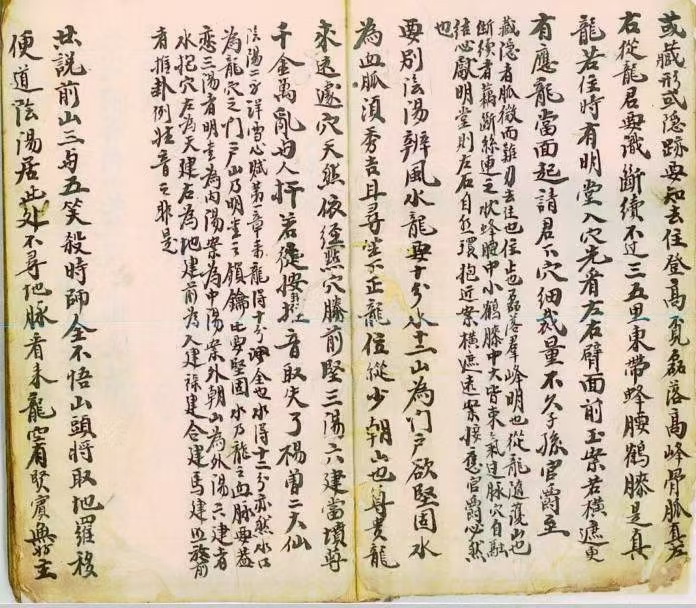 或藏形或隱跡要知去住登高覓磊落高峰骨脈真左
右從龍君要識斷續不过三五里束帶蜂腰鶴膝是真
龍若住時有明堂入穴先看左右臂面前玉案若横遮更
有應龍當面起請君下穴細裁量不久子孫官爵至
藏隱者脈微而難去住也住止也磊落羣峰明也從龍隨護山也
斷續者藕斷絲連之状蜂腰中小鶴膝中大皆束氣过脉穴自融
结心獻明堂則左右自然環抱近案横遮遠案接應官爵必然
也
要別陰陽辨風水龍要十分水十二山為門戸欲堅固水
為血脈須秀吉且尋坐下正龍位從少朝山也尊貴龍
来遠穴天然依經點穴勝前賢三陽六建當墳尊
千金萬亂与人扦若從按卦音取失了楊曾二大仙
陰陽二字詳雪心賦第一章来龍得十分全也水得十二分亦然水口
為龍穴之門戸山乃明堂之鎖鑰也要堅固水乃龍之血脉要益
恋三陽者明堂為内陽案為中陽案外朝山為外陽六建者
水抱穴左為天建右為地建前為人建禄建合建馬建前
者推卦例粧音之非是
此説前山三与五笑殺時師全不悟山頭將取地羅移
便道陰陽居此处不尋地脉看来龍有賢賓無好主